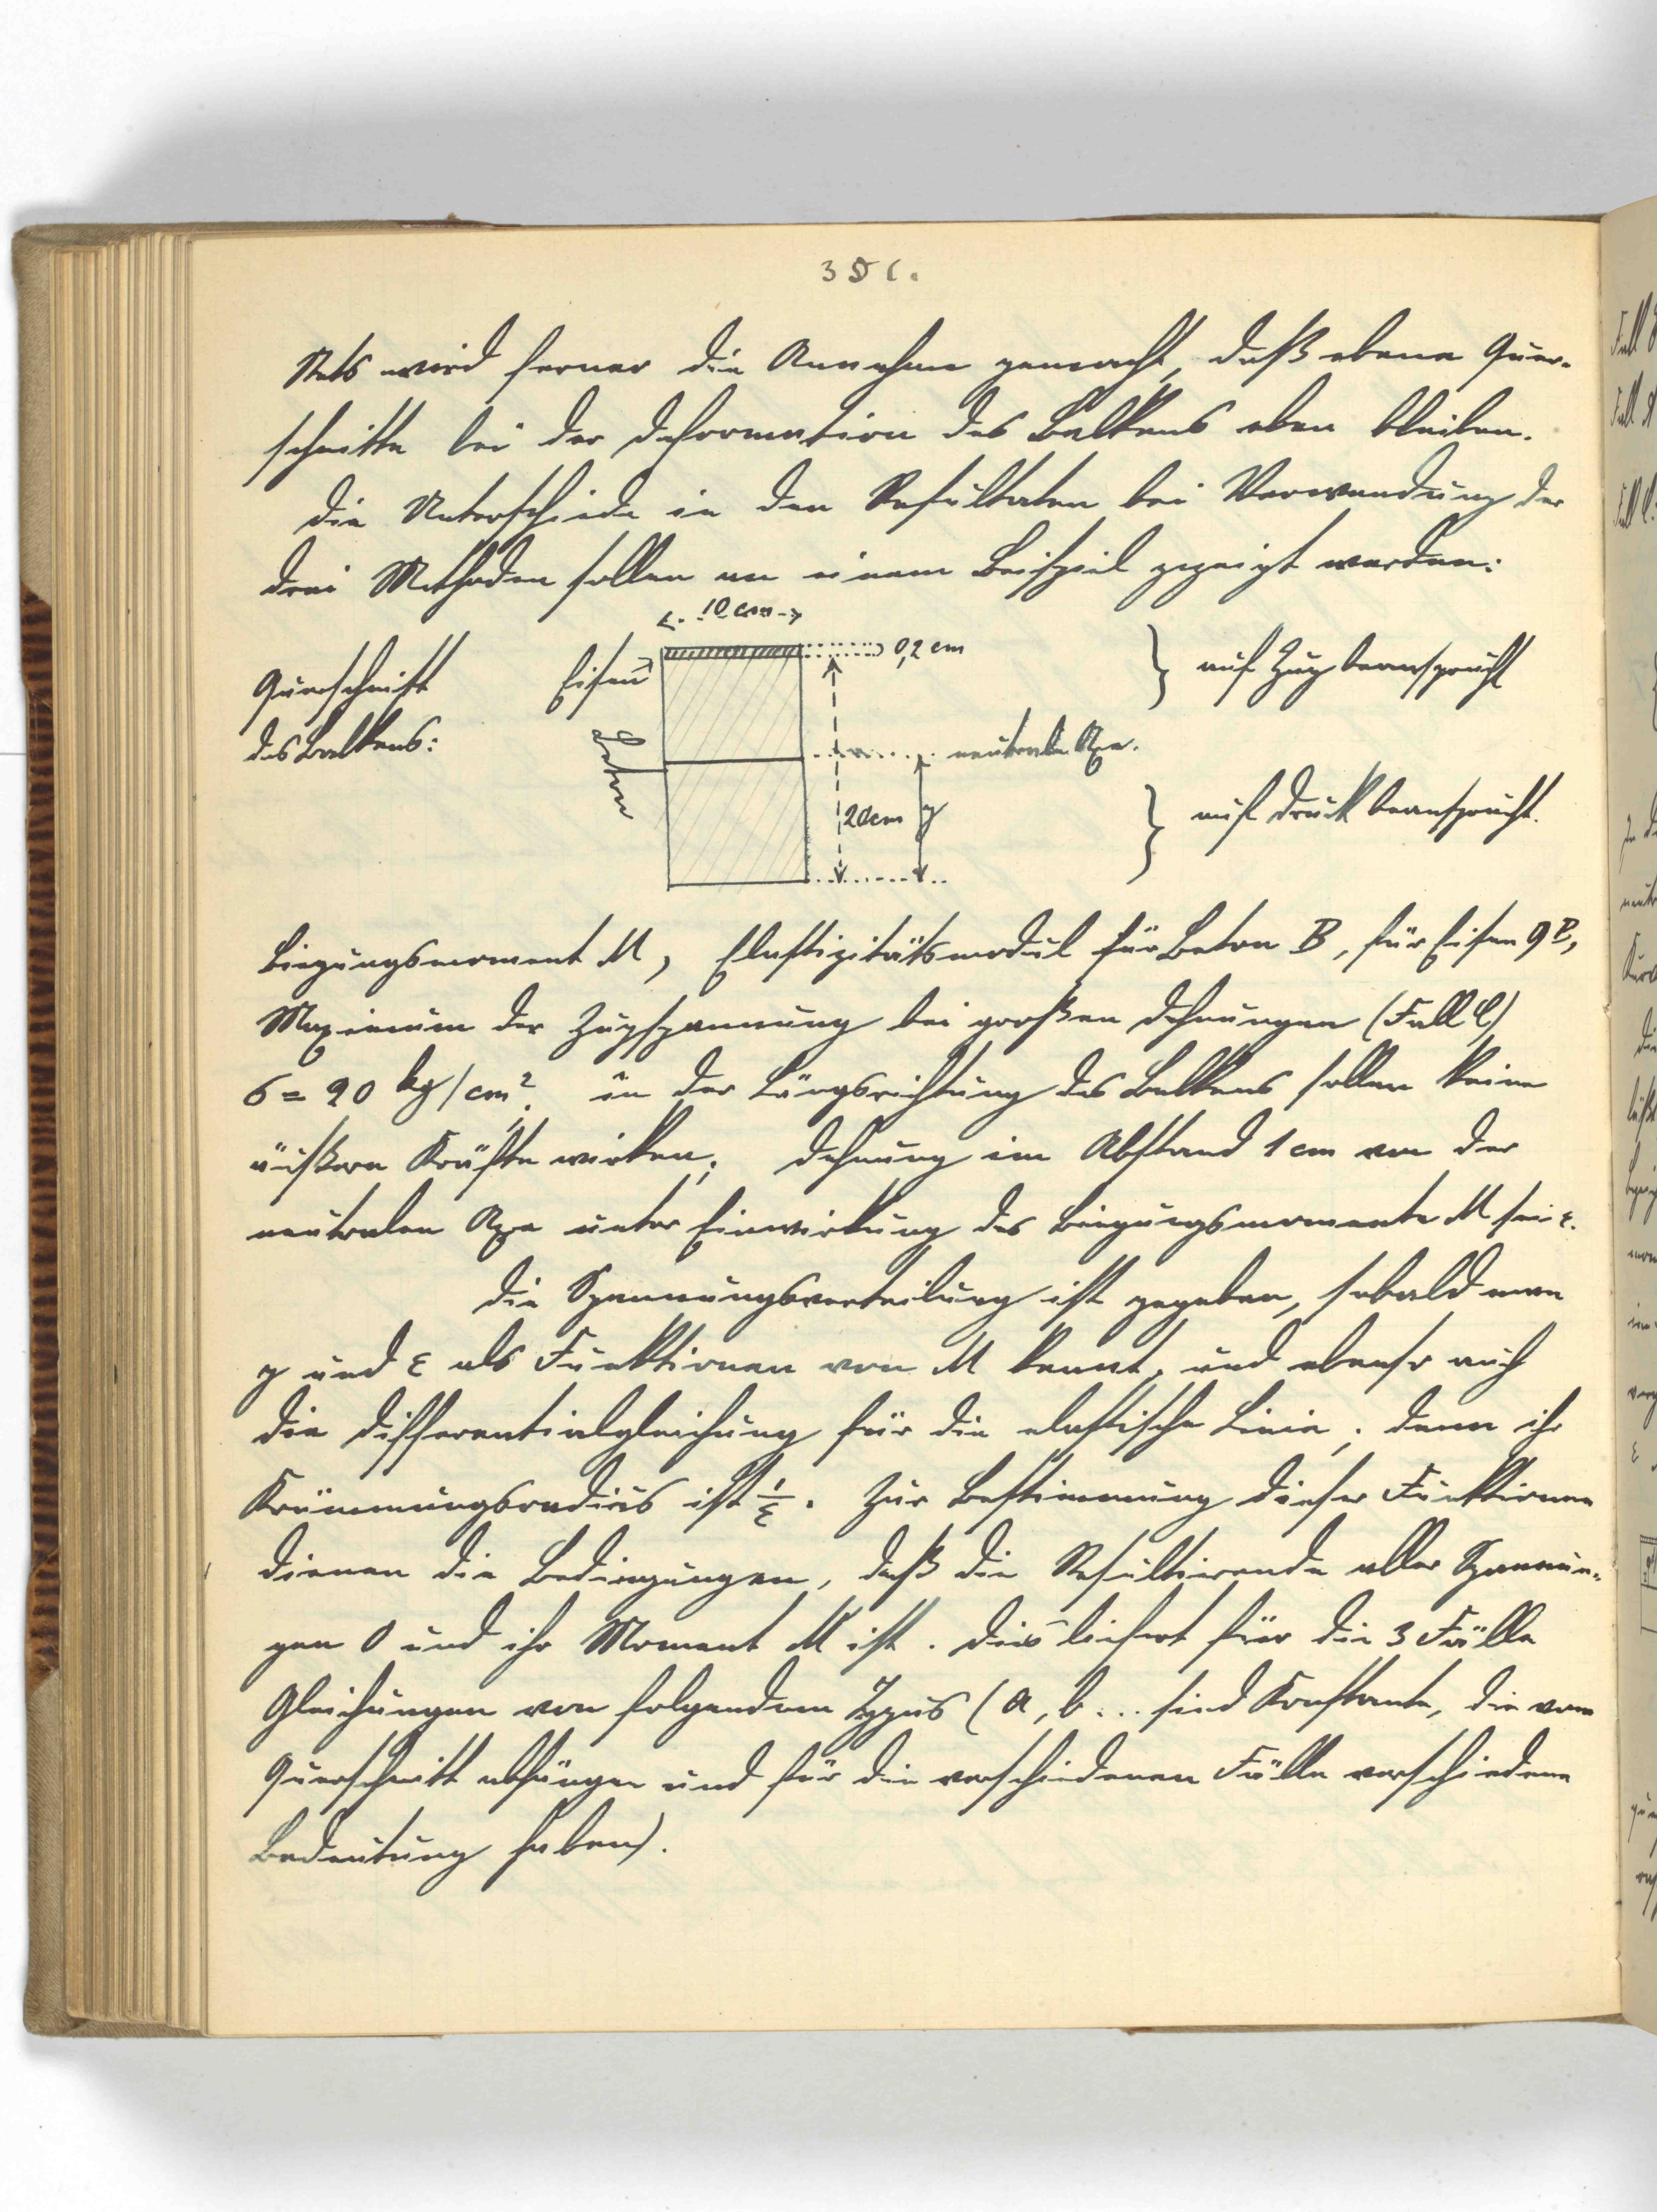 351.
Stets wird ferner die Annahme gemacht, daß ebene Quer-
schnitte bei der Deformation des Balkens eben bleiben.
Die Unterschiede in den Resultaten bei Verwendung der
drei Methoden sollen an einem Beispiel gezeigt werden:
10 cm
Querschnitt
des Balkens:
Eisen
0,2 cm
auf Zug beansprucht
Beton
neutrale Axe.
20cm
y
auf Druck beansprucht.
Biegungsmoment M, Elastizitätsmodul für Beton B, für Eisen 9B,
Maximum der Zugspannung bei großen Dehnungen (Fall C)
σ = 20 kg/cm². in der Längsrichtung des Balkens sollen keine
äußern Kräfte wirken; Dehnung im Abstand 1 cm von der
neutralen Axe unter Einwirkung des Biegungsmoments M sei ε.
Die Spannungsverteilung ist gegeben, sobald man
y und ε als Funktionen von M kennt, und ebenso auch
die Differentialgleichung für die elastische Linie; denn ihr
Krümmungsradius ist 1/ε. Zur Bestimmung dieser Funktionen
dienen die Bedingungen, daß die Resultierende aller Spannun-
gen 0 und ihr Moment M ist. Dies liefert für die 3 Fälle
Gleichungen von folgendem Typus (a, b ... sind Konstante, die vom
Querschnitt abhängen und für die verschiedenen Fälle verschiedene
Bedeutung haben).